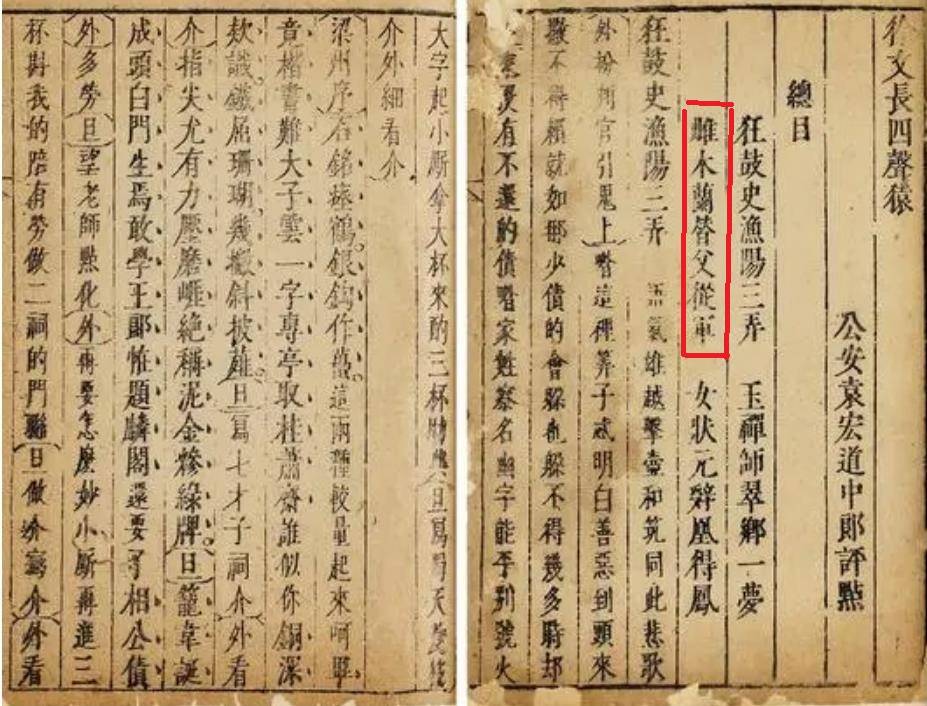 徐文長四聲猿
公安袁宏道中郎評點
總目
狂鼓史漁陽三弄　玉禪師翠鄉一夢
雌木蘭替父從軍　女狀元辭凰得鳳
狂鼓史漁陽三弄　語氣雄越擊壺和筑同此悲歌
外扮判官引鬼上喒這裡筭子忒明白善惡到頭來
撒不得賴就如那少債的會躲也躲不得幾多時却
從來沒有不還的債喒家姓察名幽字能平別號火
大字起小厮拿大杯來酌三杯
介外細看介
梁州序石銘瘞鶴銀鈎作蠆這兩種較量起來呵畢
竟楷書難大子雲一字專亭取桂蕭齋誰似你銅深
欵識鐵屈珊瑚幾撇斜披薤旦寫七才子祠介外看
介指尖尤有力壓磨崖絶稱泥金摻綠牌旦籠韋誕
成頭白門生焉敢學王郎惟題麟閣還要了相公債
外多勞旦望老師點化外再要怎麽妙小厮再進三
杯斟我的陪有勞做二祠的門聯旦做介寫介外看